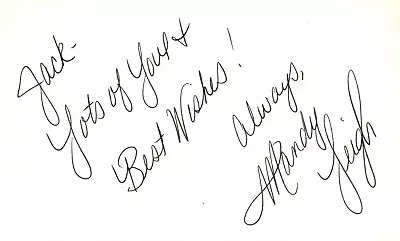 Jack-
Lots of Love &
Best Wishes!
Always,
Mandy
Leigh